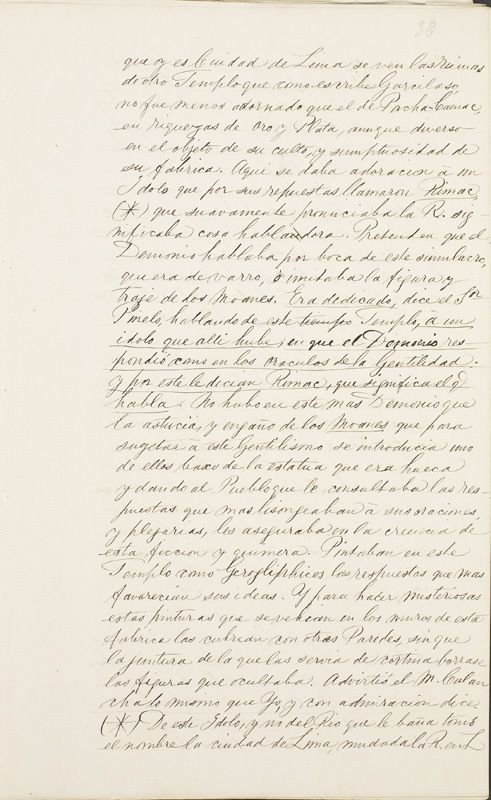 38
que oy es Ciudad de Lima se ven las ruinas
de otro Templo que como escribe Garcilaso,
no fue menos adornado que el de Pacha-Camac,
en riquezas de oro y Plata, aunque diverso
en el objeto de su culto, y sumptuosidad de
su fabrica. Aqui se daba adoracion à un
Idolo que por sus repuestas llamaron Rimac,
(*) que suavamente pronuciaba la R. sig-
nificaba cosa hablandora. Pretenden que el
Demonio hablaba por boca de este simulacro,
que era de varro, è imitaba la figura y
traje de dos Moanes. Era dedicado, dice el Sor
Pinelo, hablando de este tiempo Templo, à un
idolo que alli hube, en que el Demonio res-
pondió como en los oraculos de la Gentilidad.
y por este le decian Rimac, que significa el q
habla. No hubo en este mas Demonio que
la astucia, y engaño de los Moanes que para
sugetar à este Gentilismo se introducia uno
de ellos baxo de la estatua que era hueca
y dando al Pueblo que lo consultaba las res-
puestas que mas lisongeaban à sus oraciones
y plegarias, los aseguraba en la creencia de
esta ficcion y quimera. Pintaban en este
Templo como Gerogliphicos las respuestas que mas
favorecian sus ideas. Y para hacer misteriosas
estas pinturas que se vehian en los muros de esta
fabrica las cubrian con otras Paredes, sin que
la juntura de la que las servia de cortina borrase
las figuras que ocultaba. Advirtió el M. Calan
cha lo mismo que Yo, y con admiracion dice
(*) De este Idolo, y no del Rio que le baña tomó
el nombre la ciudad de Lima, mudada la R. en L